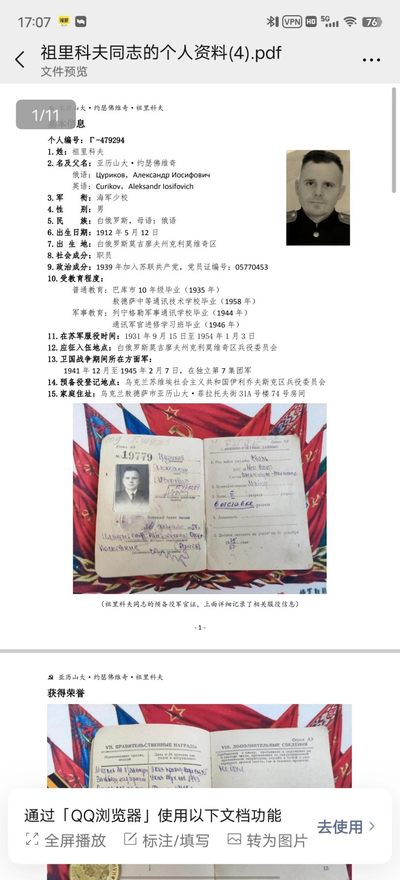 17:07
VPN
HD
5G
76
祖里科夫同志的个人资料(4).pdf
文件预览
1/11
亚历山大·约瑟佛维奇·祖里科夫
信息
个人编号：Г-479294
1.姓：祖里科夫
2.名及父名：亚历山大·约瑟佛维奇
俄语：Цуриков, Александр Иосифович
英语：Curikov, Aleksandr Iosifovich
3.军 衔：海军少校
4.性 别：男
5.民 族：白俄罗斯，母语：俄语
6.出生日期：1912 年 5 月 12 日
7.出 生 地：白俄罗斯莫吉廖夫州克利莫维奇区
8.社会成分：职员
9.政治成分：1939 年加入苏联共产党，党员证编号：05770453
10.受教育程度：
普通教育：巴库市 10 年级毕业（1935 年）
敖德萨中等通讯技术学校毕业（1958 年）
军事教育：列宁格勒军事通讯学校毕业（1944 年）
通讯军官进修学习班毕业（1946 年）
11.在苏军服役时间：1931 年 9 月 15 日至 1954 年 1 月 3 日
12.应征入伍地点：白俄罗斯莫吉廖夫州克利莫维奇区兵役委员会
13.卫国战争期间所在方面军：
1941 年 12 月至 1945 年 2 月 7 日，在独立第 7 集团军
14.预备役登记地点：乌克兰苏维埃社会主义共和国伊利乔夫斯克区兵役委员会
15.家庭住址：乌克兰敖德萨市亚历山大·菲拉托夫街 31A 号楼 74 号房间
№19779
（祖里科夫同志的预备役军官证，上面详细记录了相关服役信息）
- 1 -
亚历山大·约瑟佛维奇·祖里科夫
获得荣誉
VII. ПРАВИТЕЛЬСТВЕННЫЕ НАГРАДЫ
VIII. ДОПОЛНИТЕЛЬНЫЕ СВЕДЕНИЯ
通过「QQ浏览器」使用以下文档功能
全屏播放
标注/填写
转为图片
去使用